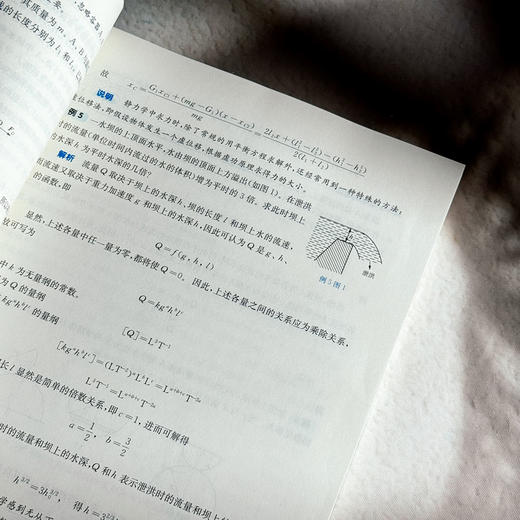 要，忽略
其质量为m。A、B
的长度分别为l₁和l₂
故
x_C = (G₁x_{C1}+(mg−G₁)(x−x_{C2}))/mg = (2l₁x+(l₁²−l₂²)−(h₁²−h₂²))/(2(l₁+l₂))
说明 静力学中求力时，除了常规的用平衡方程求解外，还经常用到一种特殊的方法：
虚位移法，即假设物体发生一个虚位移，根据虚功原理求得力的大小。
例5 一水坝的上顶面水平，水由坝的顶面上方溢出(如图1)。在泄洪
时的流量(单位时间内流过的水的体积)增为平时的3倍。求此时坝上
的水深h为平时水深的几倍？
解析 流量Q取决于坝上的水深h、坝的长度l和坝上水的流速，
而流速又取决于重力加速度g和坝上的水深h，因此可认为Q是g、h、
的函数，即
Q=f(g,h,l)
显然，上述各量中任一量为零，都将使Q=0。因此，上述各量之间的关系应为乘除关系，
故可写为
Q=kgᵃhᵇlᶜ
中k为无量纲的常数。
Q的量纲
[Q]=L³T⁻¹
kgᵃhᵇlᶜ的量纲
[kgᵃhᵇlᶜ]=(LT⁻²)ᵃLᵇLᶜ=Lᵃ⁺ᵇ⁺ᶜT⁻²ᵃ
L³T⁻¹=Lᵃ⁺ᵇ⁺ᶜT⁻²ᵃ
长l显然是简单的倍数关系，即c=1，进而可解得
a=1/2，b=3/2
时的流量和坝上的水深，Q和h表示泄洪时的流量和坝上的
h^{3/2}=3h₀^{3/2}，得h=3^{2/3}h₀
学感到无从下
h
泄洪
例5图1